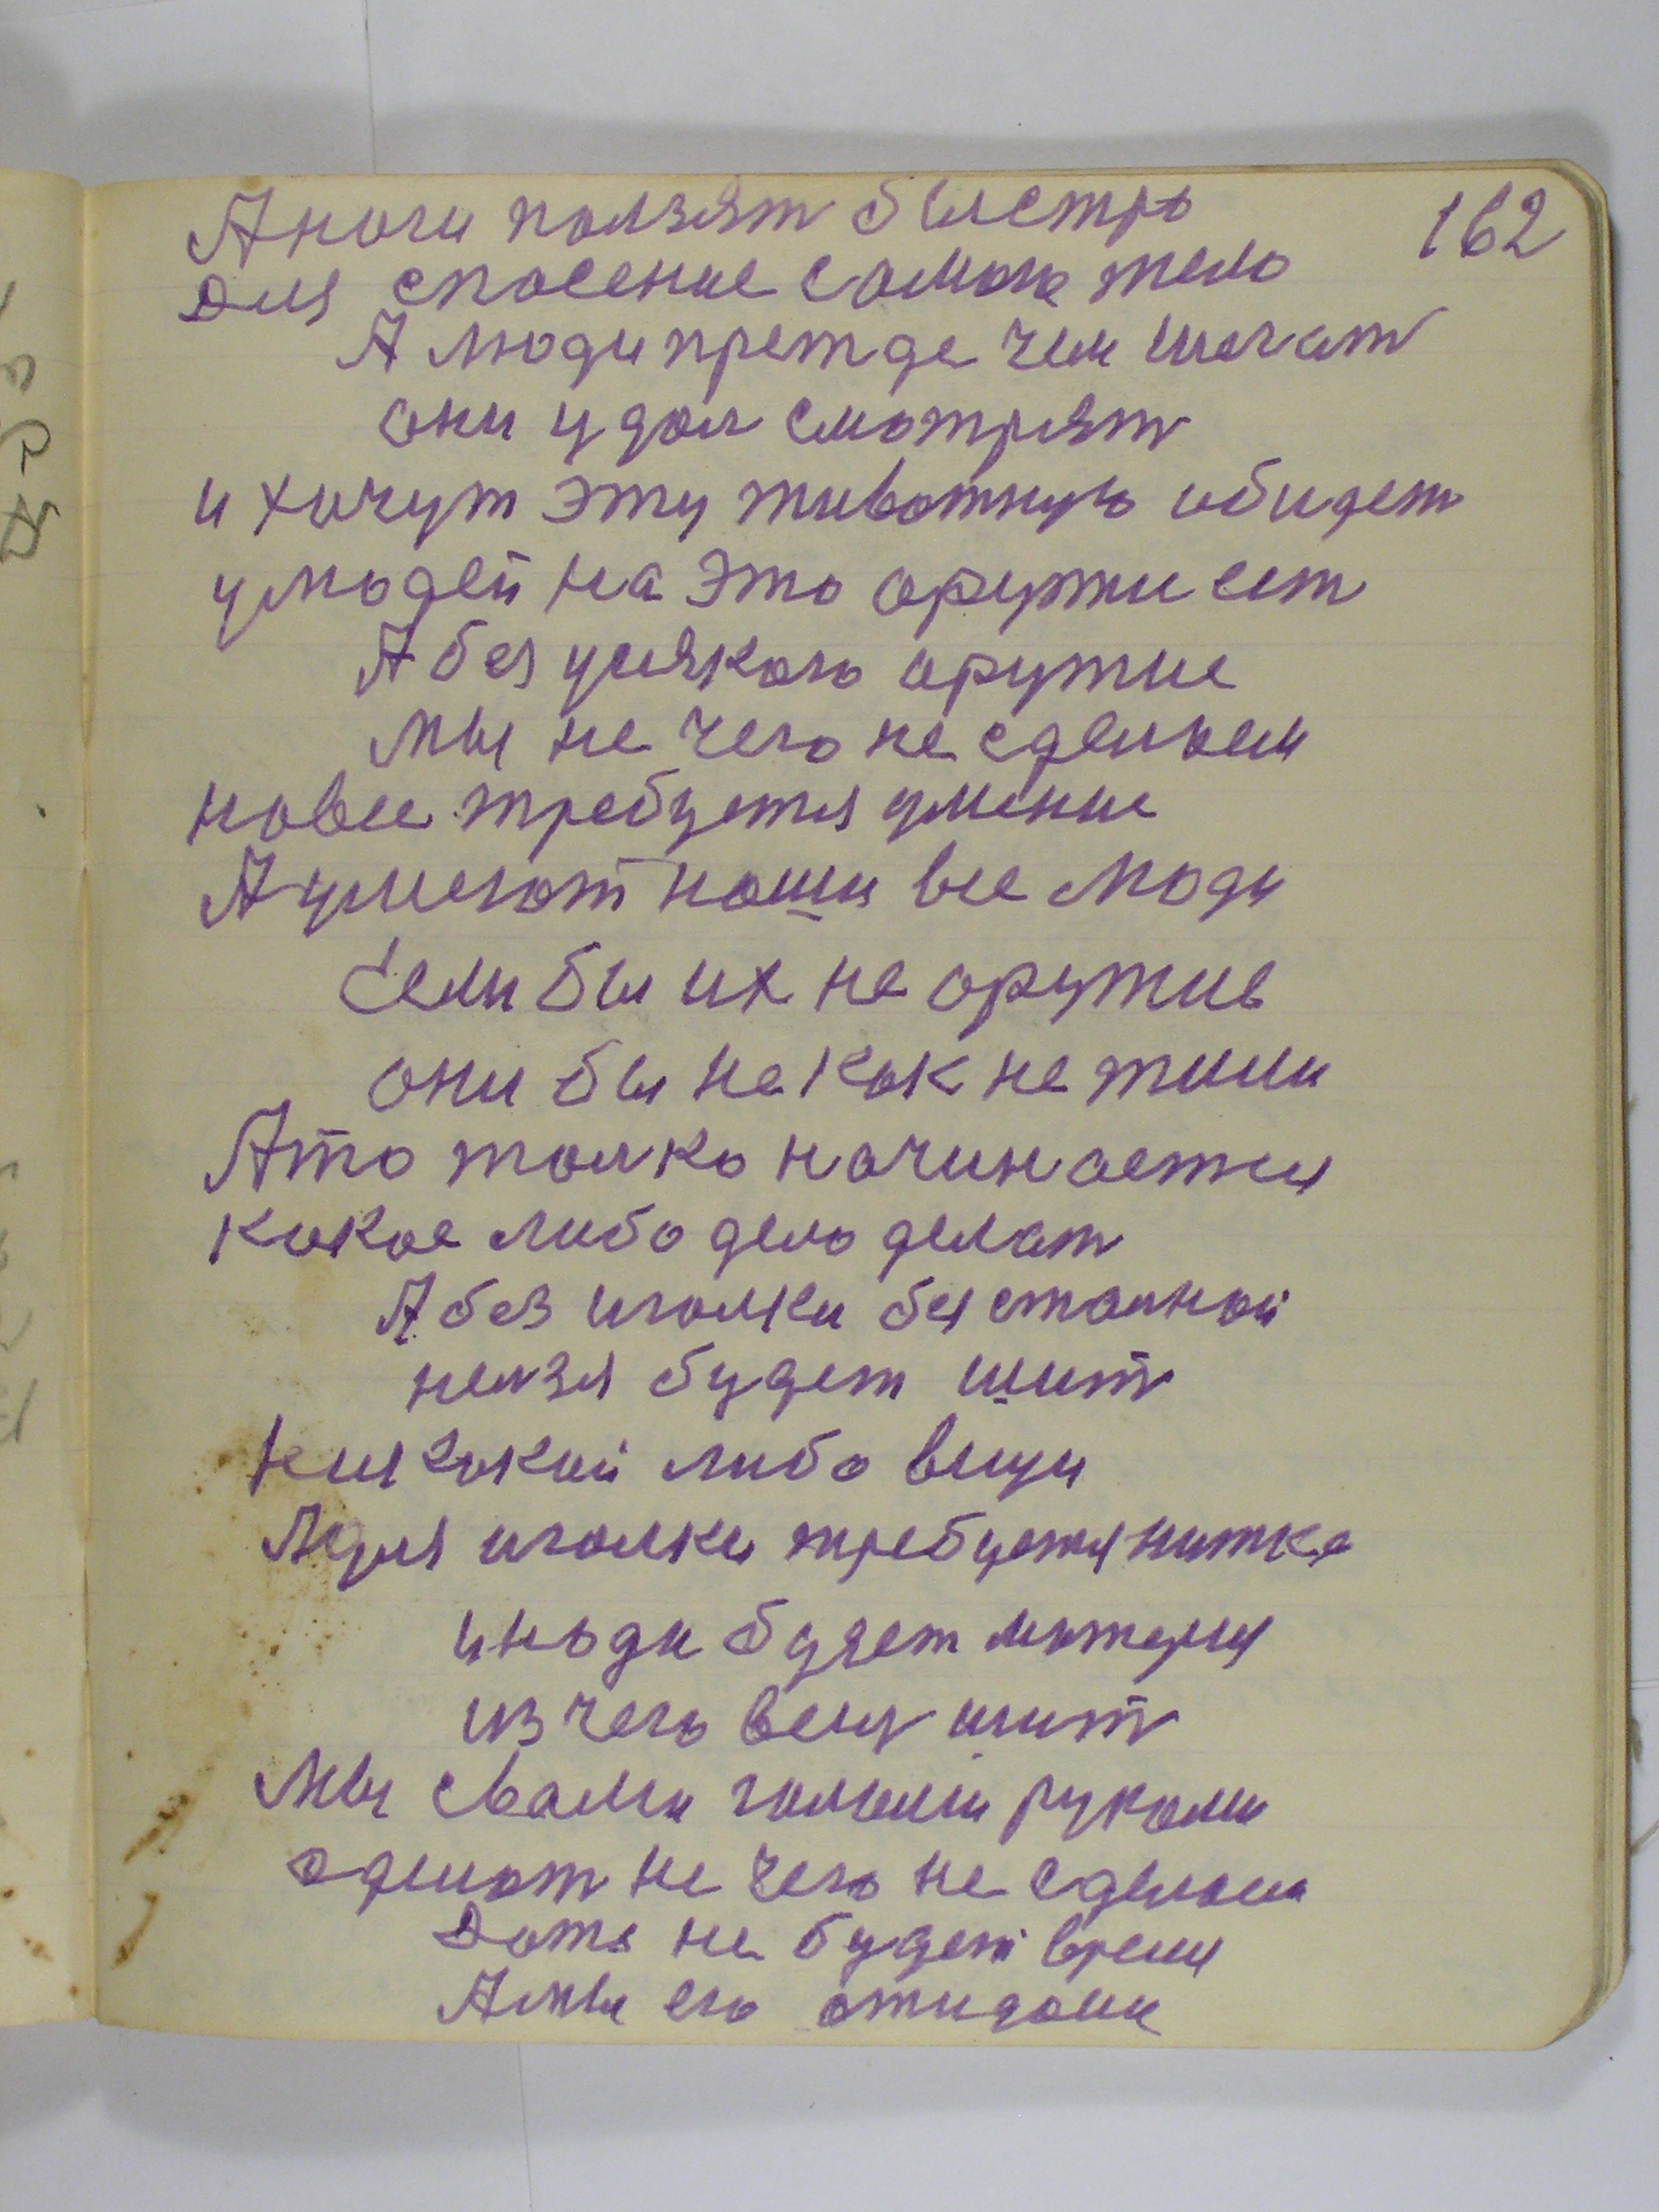 162
А ноги ползят быстро
Для спасение самого тело
А люди прежде чем шагат
они удал смотрят
и хочут эту животную обидет
у людей на это оружи ест
А без усякого оружие
мы не чего не сделаем
на все требуется умение
А умегат наши все люди
Если бы их не оружие
они бы не как не жили
А то толко начинается
какое либо дело делат
А без иголки бы сталной
нелзя будет шит
какой либо вещи
А для иголки требуется нитка
и надо будет материя
из чего вещ шит
Мы с вами голыми руками
сделат не чего не сделаем
Даже не будет время
А мы его ожидаем